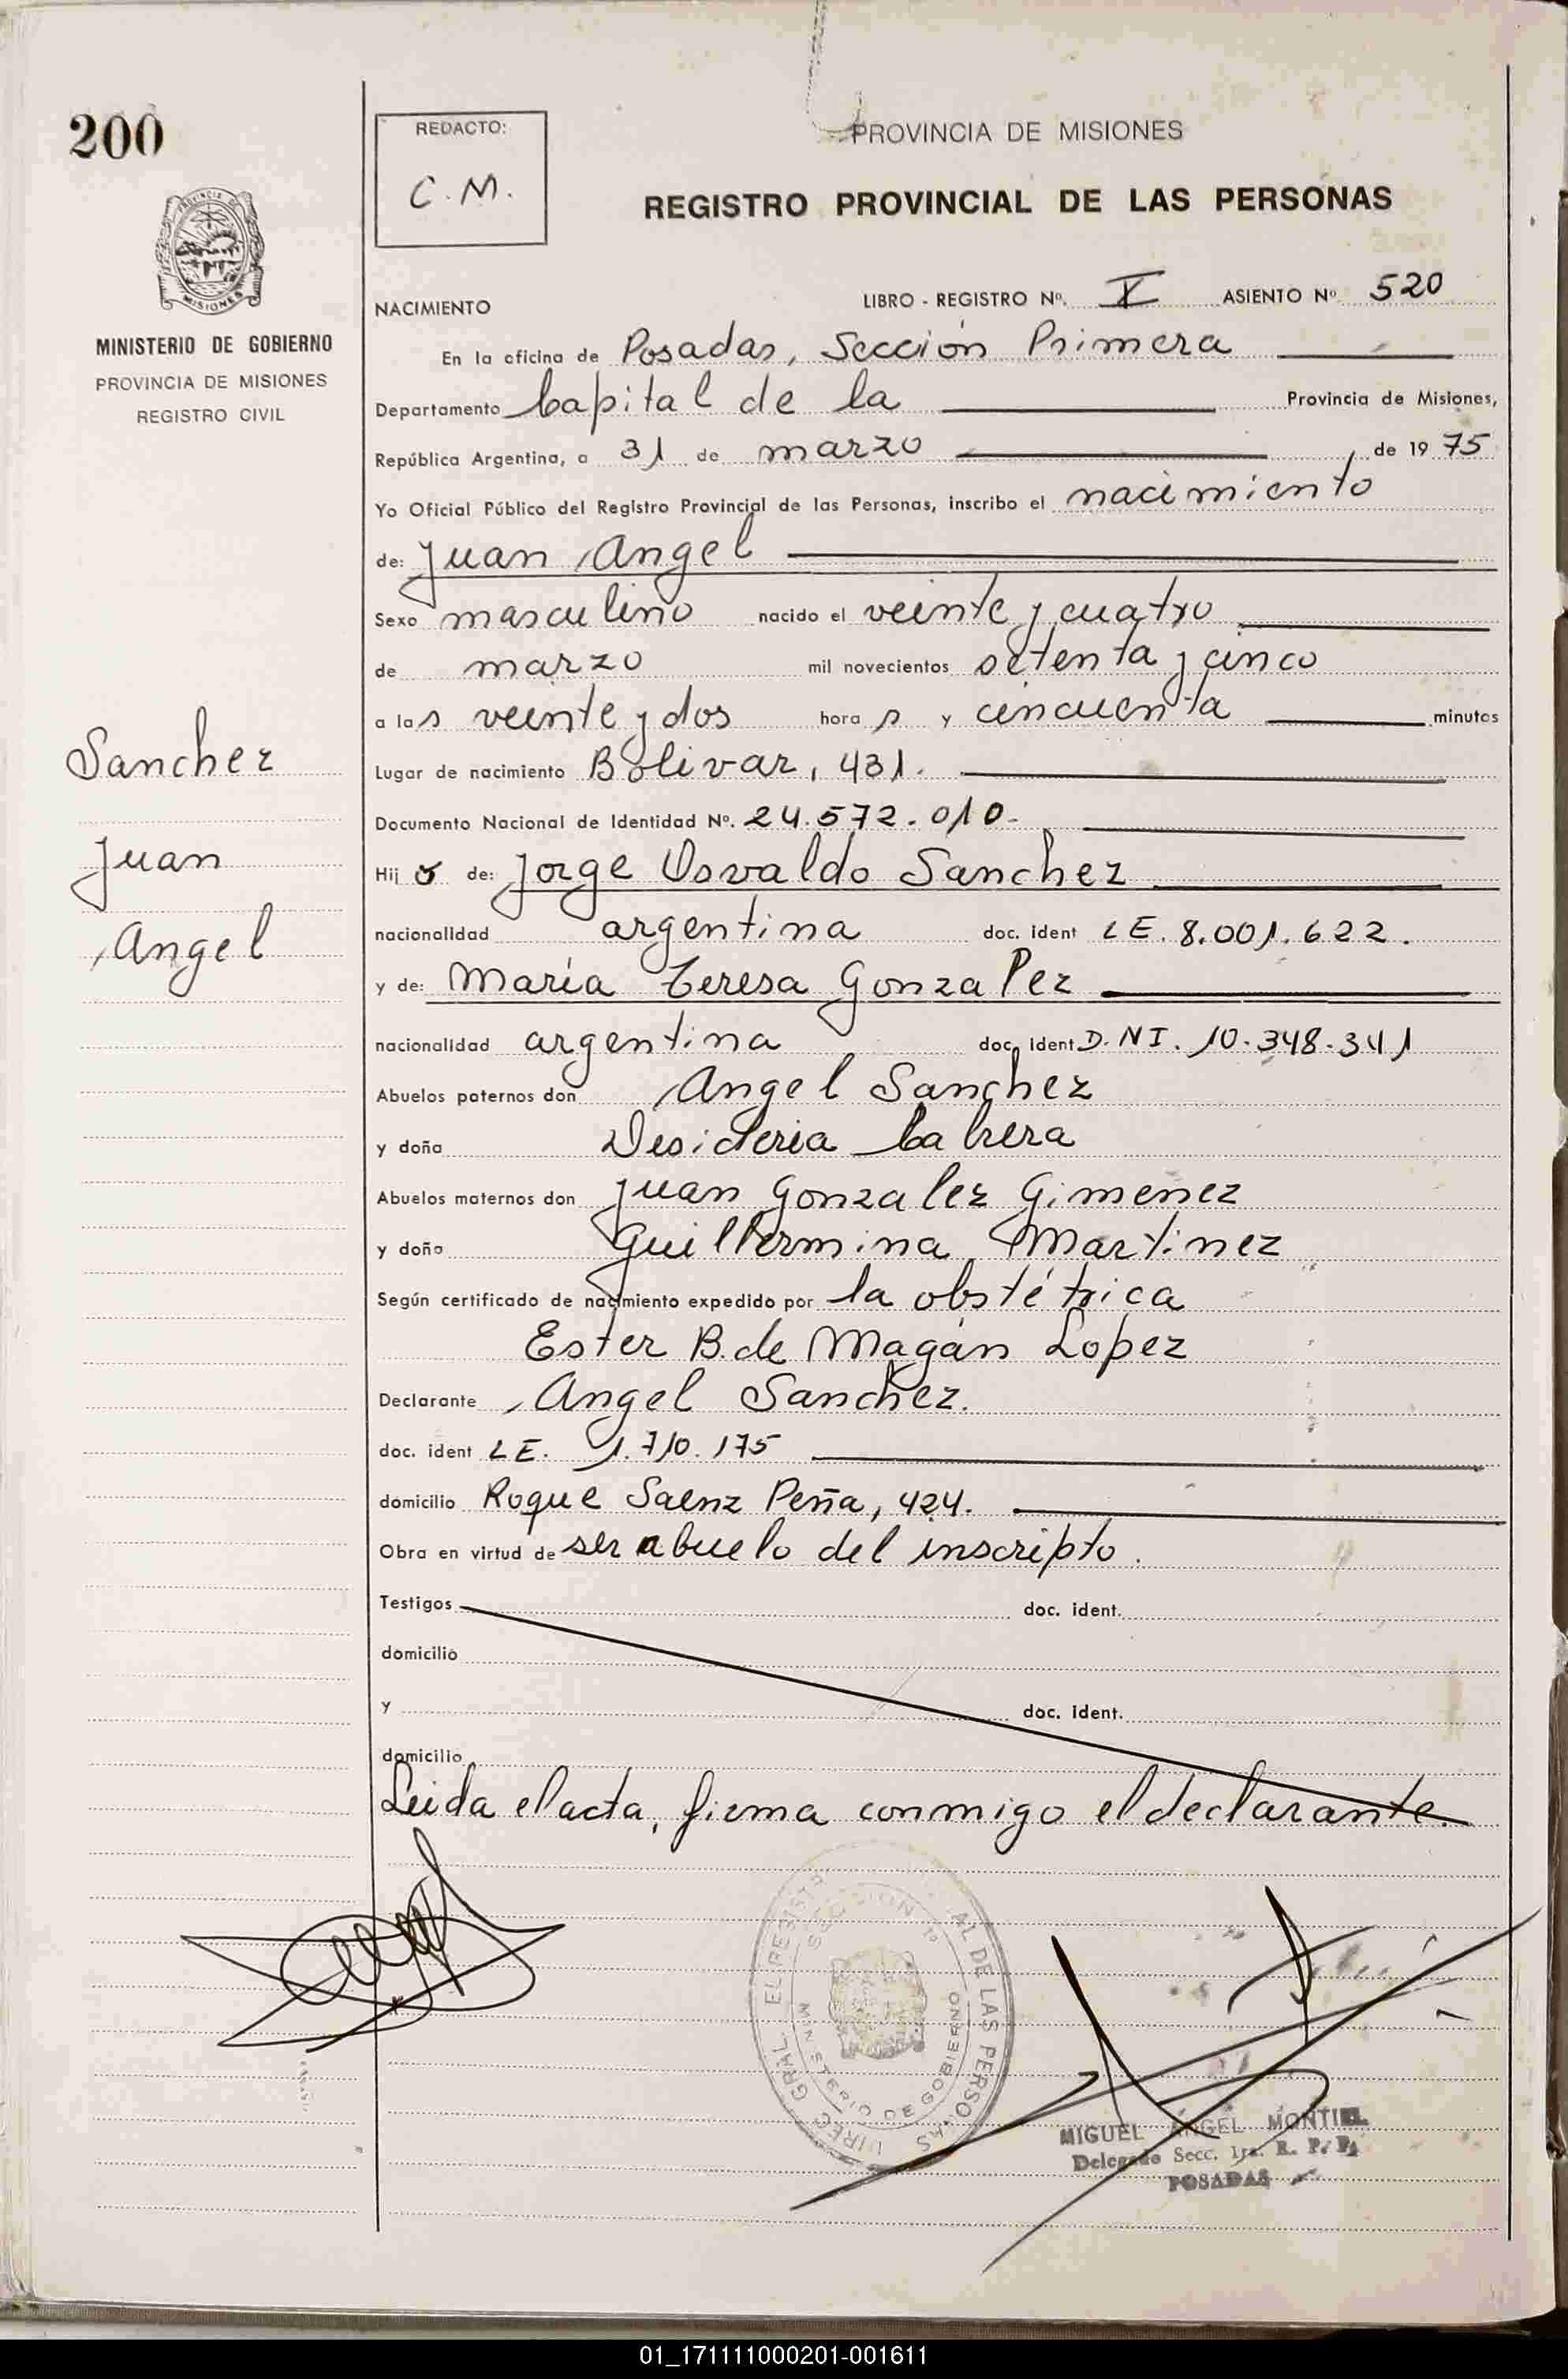 200
REDACTO:
C.M.
PROVINCIA DE MISIONES
REGISTRO PROVINCIAL DE LAS PERSONAS
PROVINCIA DE
MISIONES
MINISTERIO DE GOBIERNO
PROVINCIA DE MISIONES
REGISTRO CIVIL
NACIMIENTO LIBRO - REGISTRO Nº. V ASIENTO Nº 520
En la oficina de Posadas, Sección Primera
Departamento Capital de la Provincia de Misiones,
República Argentina, a 31 de marzo de 1975
Yo Oficial Público del Registro Provincial de las Personas, inscribo el nacimiento
de: Juan Angel
Sexo masculino nacido el veinte y cuatro
de marzo mil novecientos setenta y cinco
a las veinte y dos horas y cincuenta minutos
Sanchez
Juan
Angel
Lugar de nacimiento Bolivar, 431.
Documento Nacional de Identidad Nº. 24.572.010-
Hijo de: Jorge Osvaldo Sanchez
nacionalidad argentina doc. ident LE. 8.001.622.
y de: María Teresa Gonzalez
nacionalidad argentina doc. ident D.NI. 10.348.341
Abuelos paternos don Angel Sanchez
y doña Desideria Cabrera
Abuelos maternos don Juan Gonzalez Gimenez
y doña Guillermina Martinez
Según certificado de nacimiento expedido por la obstétrica
Ester B. de Magán Lopez
Declarante Angel Sanchez.
doc. ident LE. 1.710.175
domicilio Roque Saenz Peña, 424.
Obra en virtud de ser abuelo del inscripto.
Testigos doc. ident.
domicilio
y doc. ident.
domicilio
Leida el acta, firma conmigo el declarante.
DIREC. GRAL. EL REGISTR AL DE LAS PERSONAS
SECCION 1º
MINISTERIO DE GOBIERNO
MIGUEL ANGEL MONTIEL
Delegado Secc. 1ra. R. P. P.
POSADAS
01_171111000201-001611